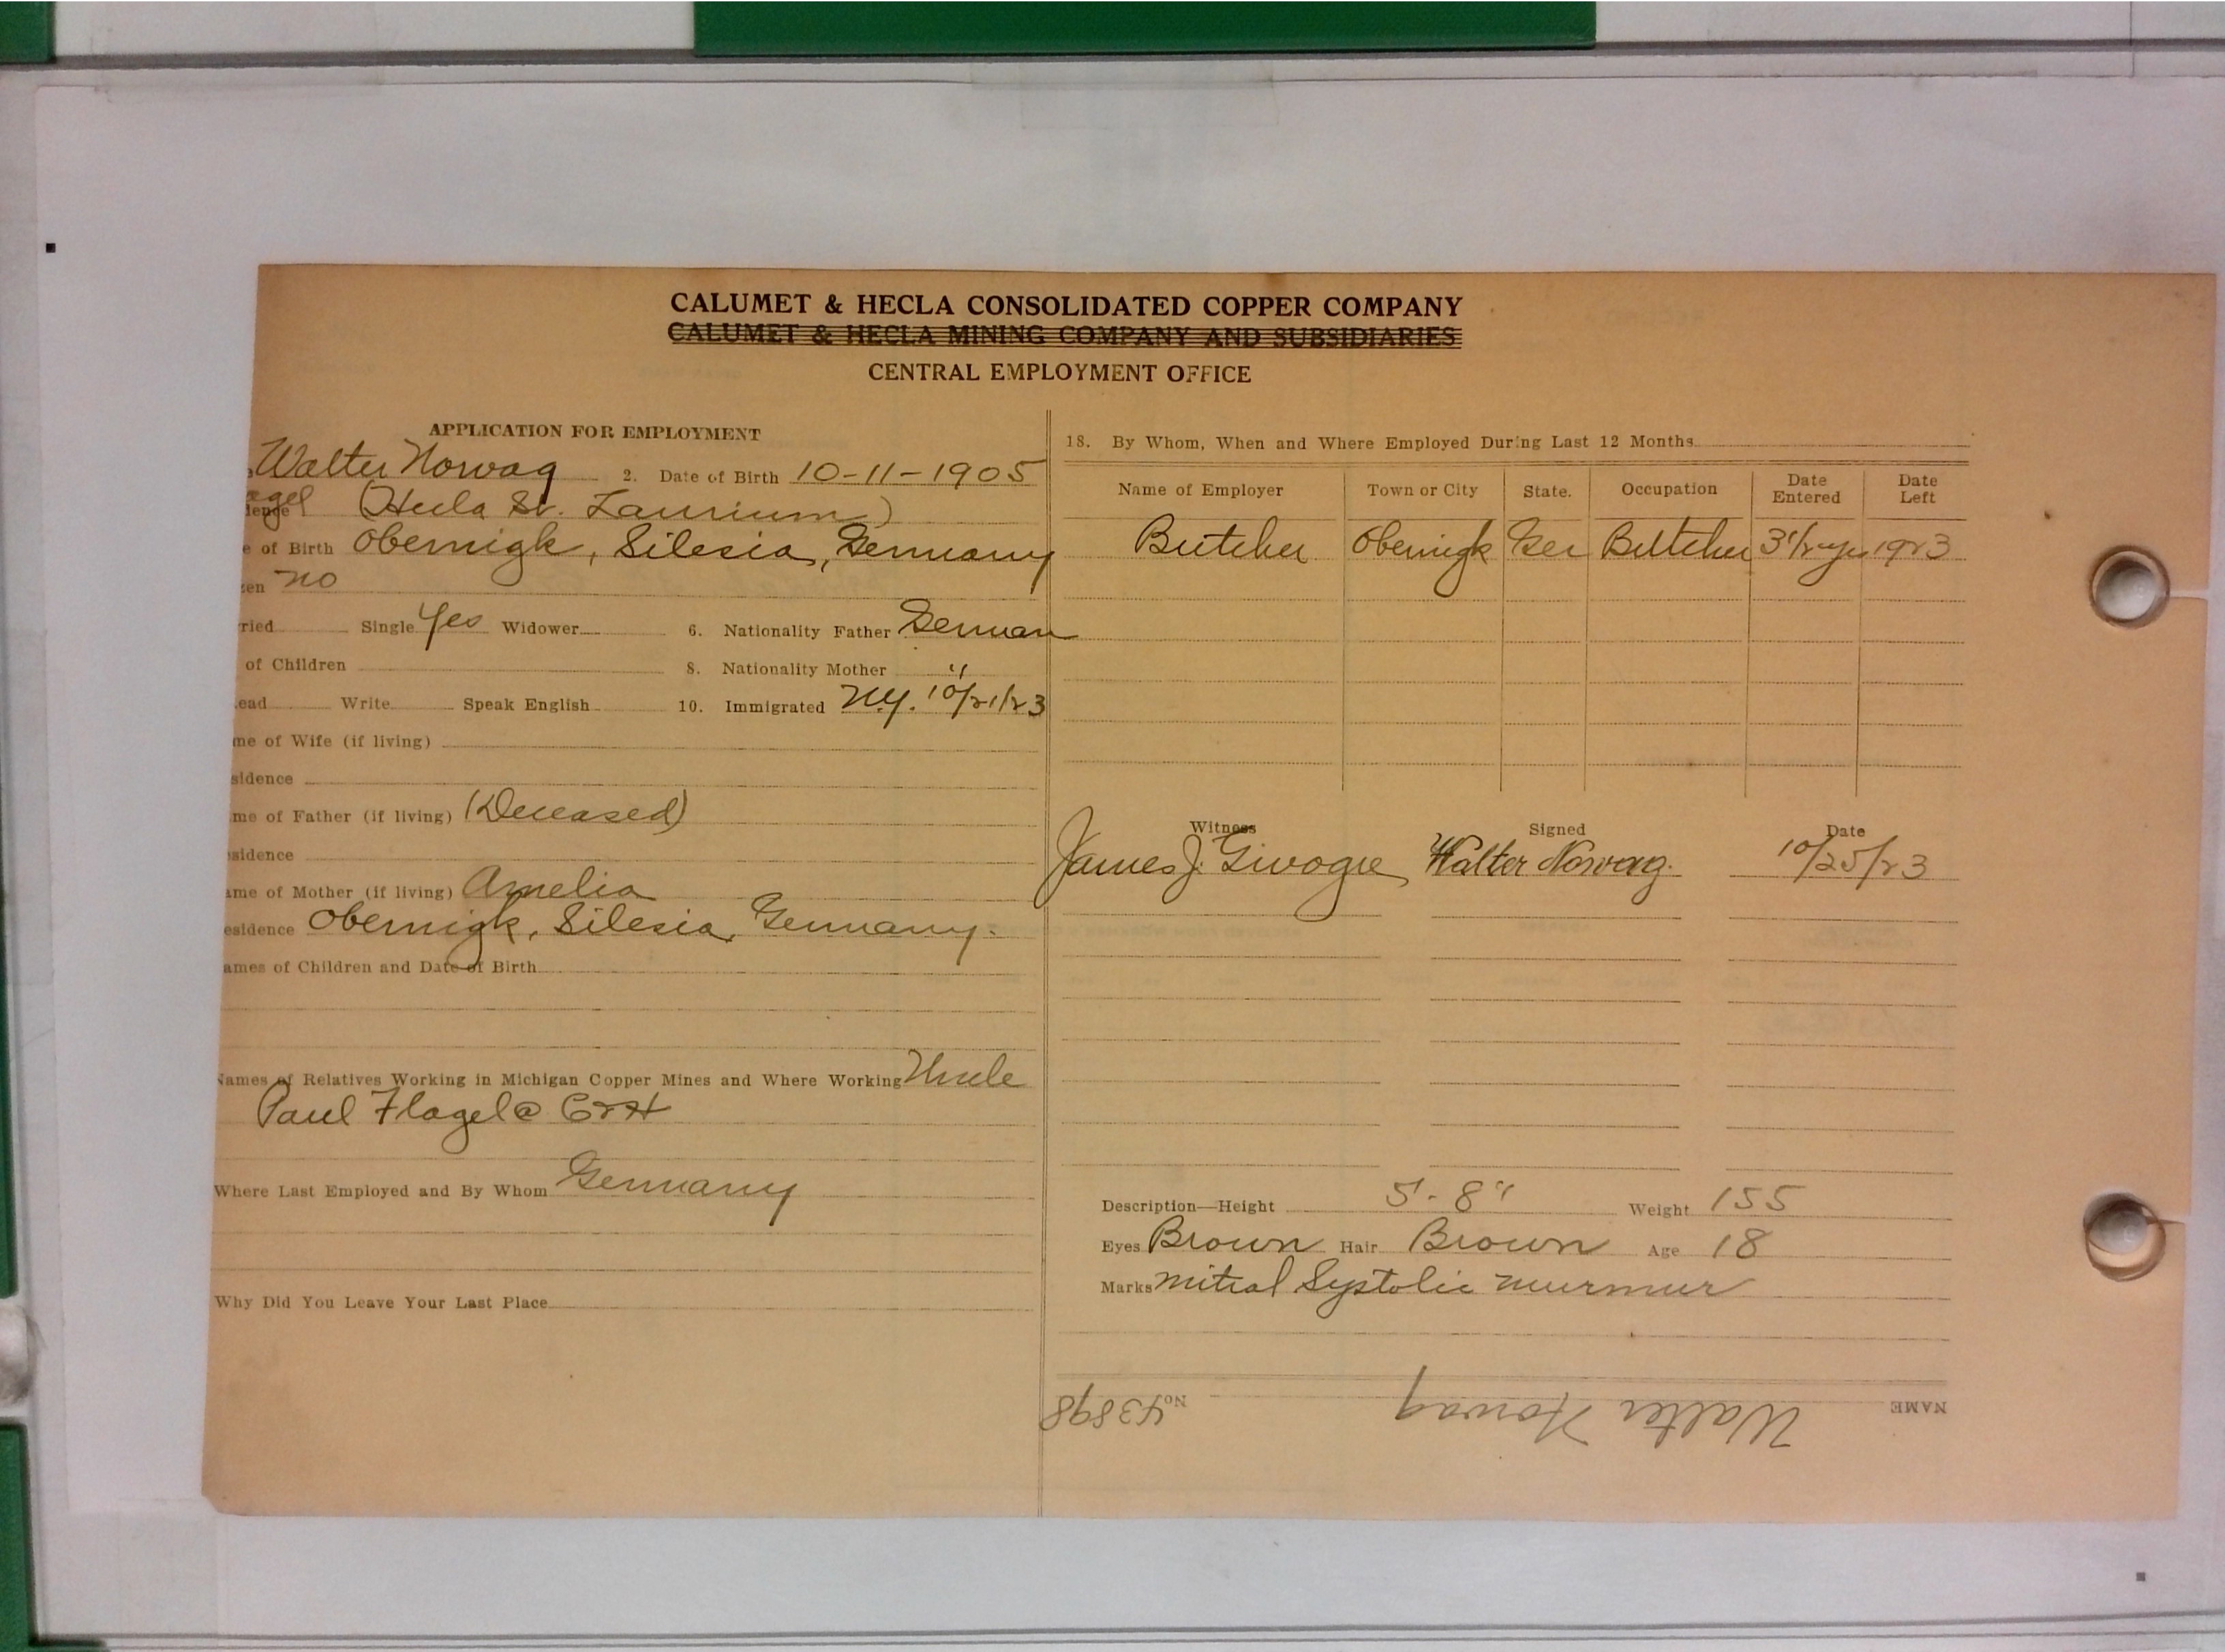 CALUMET & HECLA CONSOLIDATED COPPER COMPANY
CALUMET & HECLA MINING COMPANY AND SUBSIDIARIES
CENTRAL EMPLOYMENT OFFICE
APPLICATION FOR EMPLOYMENT
Walter Nowag 2. Date of Birth 10-11-1905
agel (Hecla St. Laurium)
e of Birth Obernigk, Silesia, Germany
zen no
ried Single Yes Widower 6. Nationality Father German
of Children 8. Nationality Mother "
ead Write Speak English 10. Immigrated N.Y. 10/21/23
me of Wife (if living)
sidence
me of Father (if living) (Deceased)
sidence
ame of Mother (if living) Amelia
esidence Obernigk, Silesia, Germany.
ames of Children and Date of Birth
Names of Relatives Working in Michigan Copper Mines and Where Working Uncle
Paul Flagel @ C&H
Where Last Employed and By Whom Germany
Why Did You Leave Your Last Place
18. By Whom, When and Where Employed During Last 12 Months
Name of Employer Town or City State. Occupation Date Entered Date Left
Butcher Obernigk Ger Butcher 3 1/2 yrs 1923
Witness Signed Date
James J. Walter Nowag. 10/25/23
Description—Height 5'-8" Weight 155
Eyes Brown Hair Brown Age 18
Marks Mitral Systolic murmur
NAME Walter Nowag No. 43898